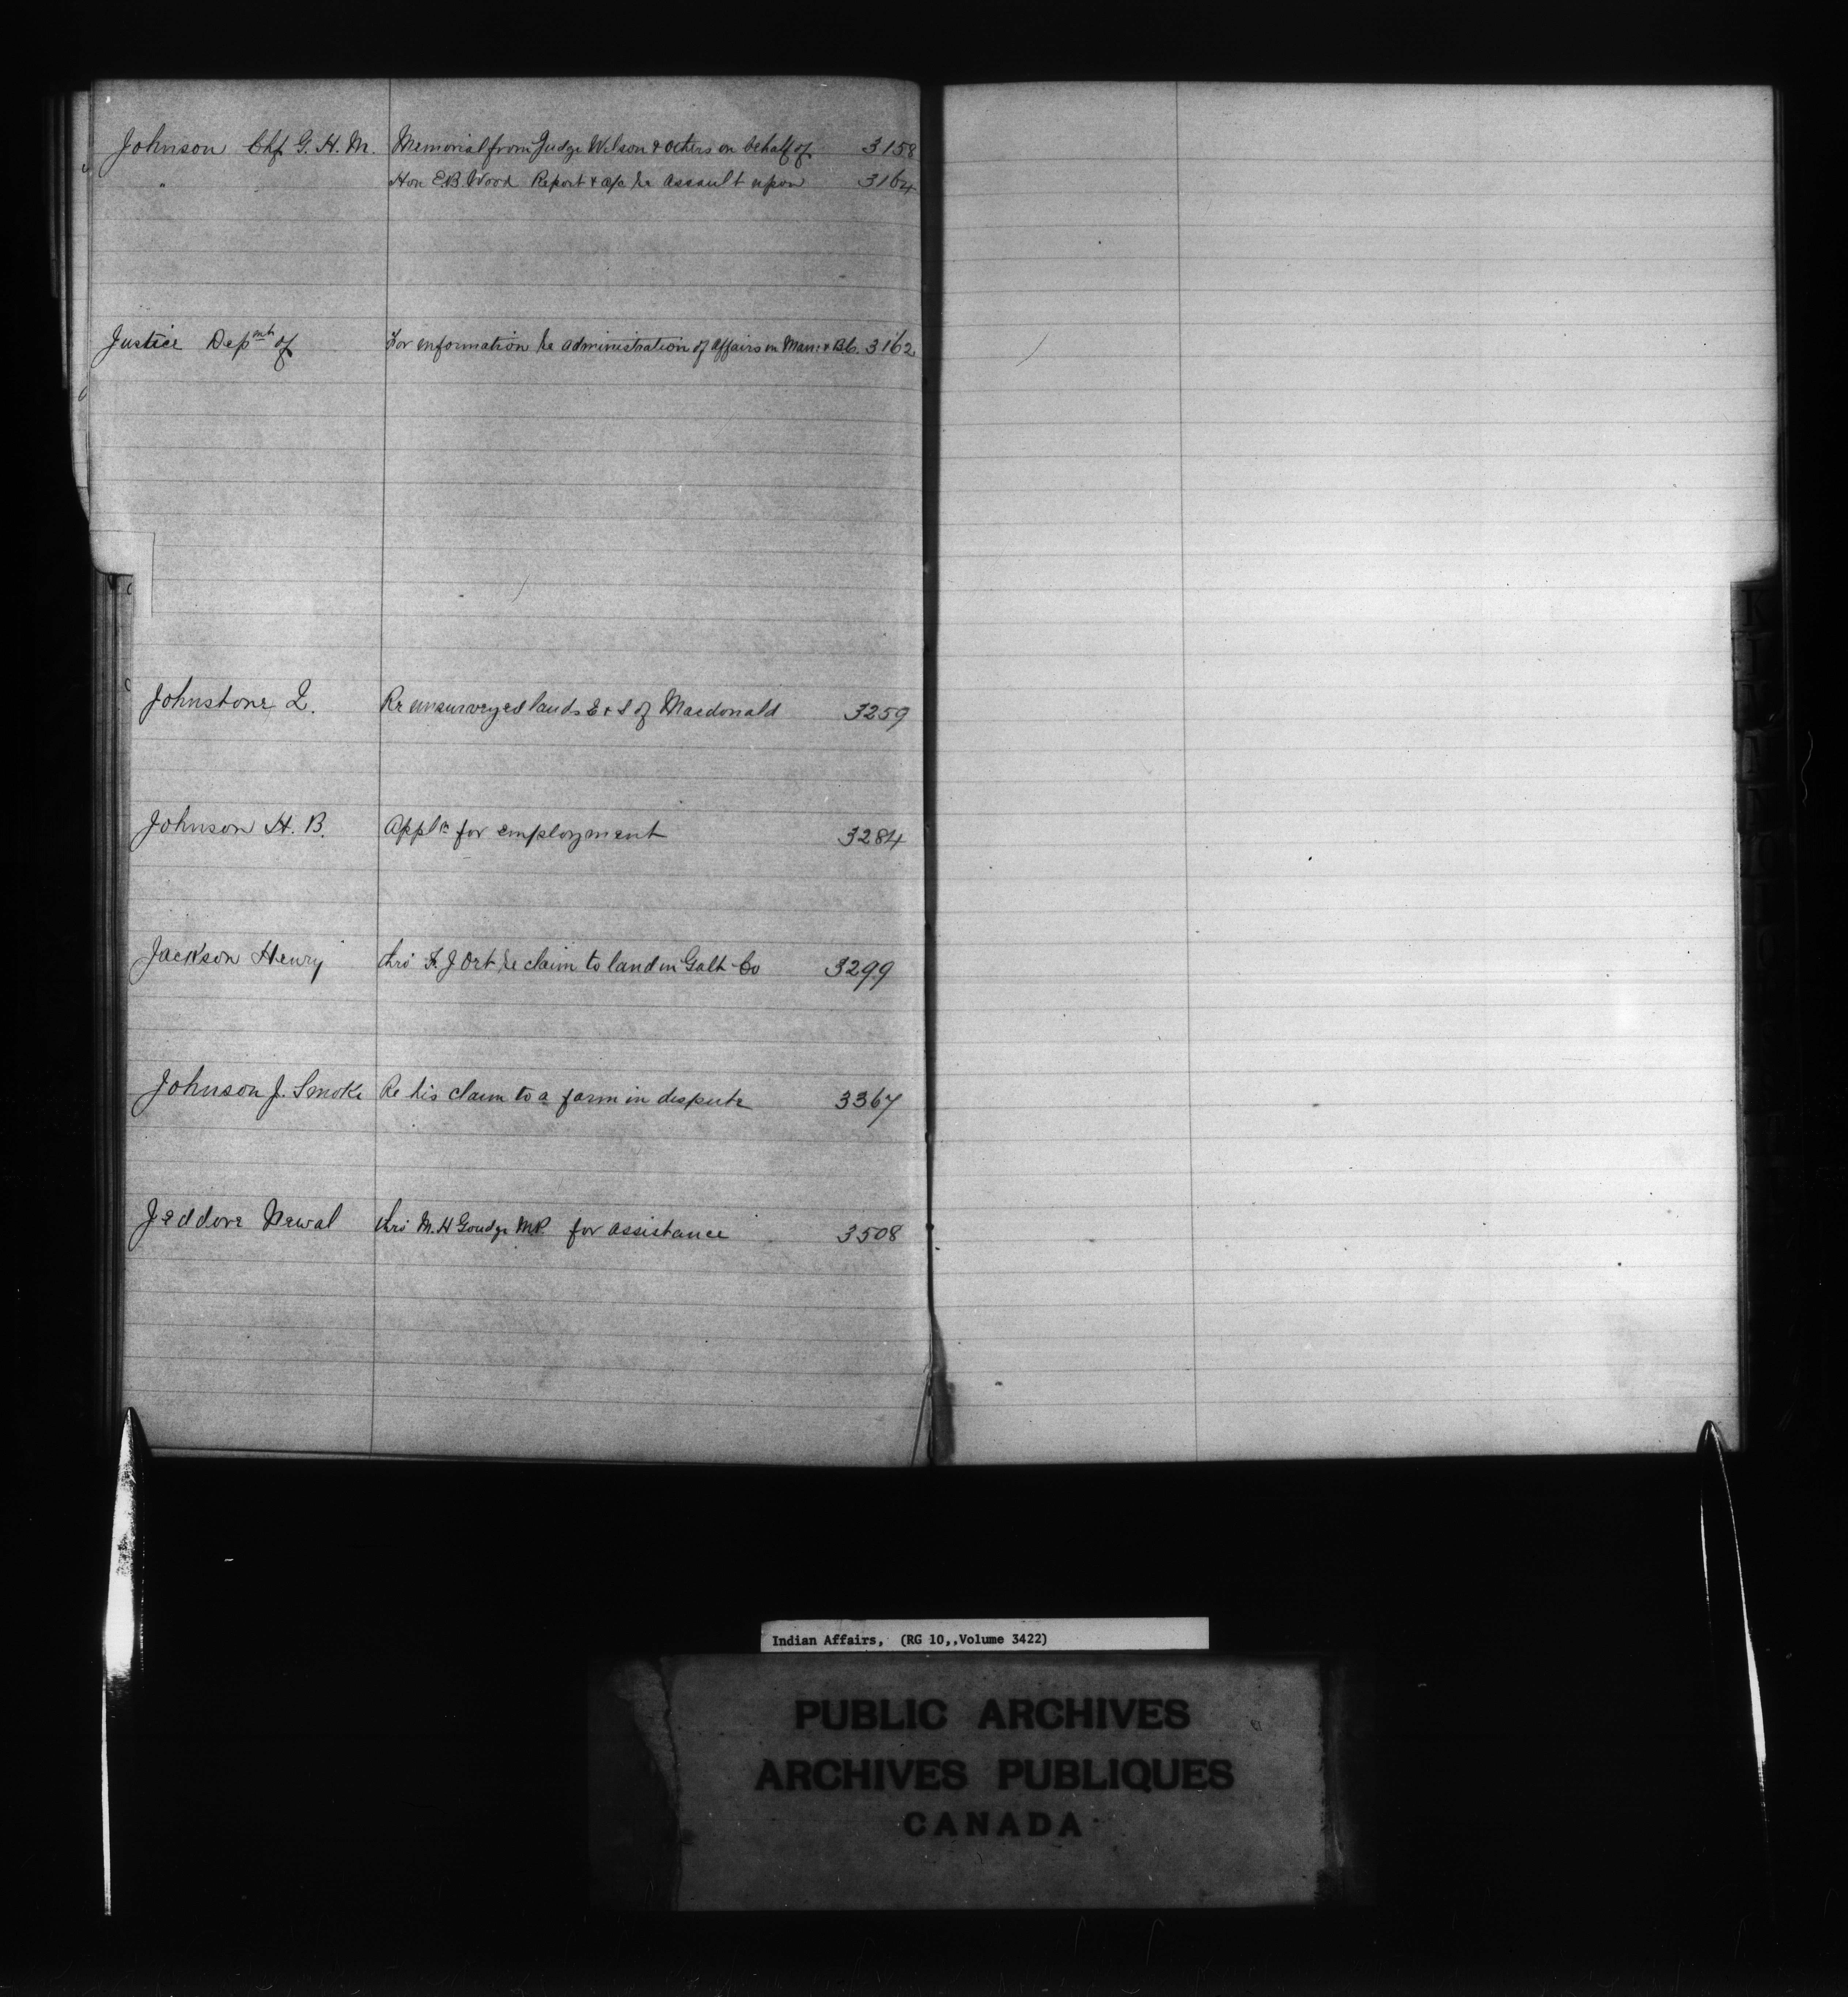 Johnson Chf G. H. M. Memorial from Judge Wilson & others on behalf of 3158
" Hon E.B. Wood Report & a/c re assault upon 3164
Justice Depmt of For information re administration of affairs in Man: & BC. 3162
Johnstone L. Re unsurveyed lands E & S of Macdonald 3259
Johnson H. B. Appln for employment 3284
Jackson Henry thro' J Ort re claim to land in Galt Co 3299
Johnson J. Smoke Re his claim to a farm in dispute 3367
Jeddore Newal thro' M. H Goudge MP. for assistance 3508
K
L
Indian Affairs, (RG 10,,Volume 3422)
PUBLIC ARCHIVES
ARCHIVES PUBLIQUES
CANADA